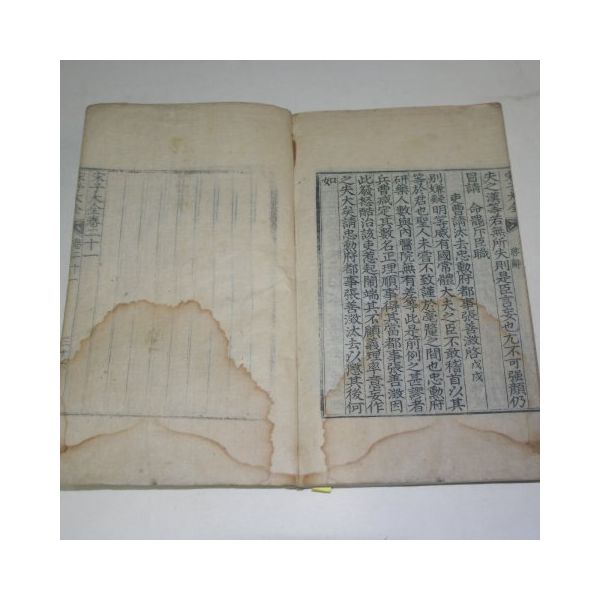 夫之漢等若無所失則是臣言妄也尤不可强顔仍
冒請　命罷斥臣職
吏曹請汰去忠勳府都事張善瀓啓戊戌
別嫌疑明等威有國常體大夫之臣不敢稽首以其
等於君也聖人未嘗不致謹於
之間也忠勳府
研藥人數與內醫院無有差等此是前例之甚謬者
兵曹咸定其數名正理順事
當都事張善瀓因
此發怒
該吏惹起鬧端其不顧義理率意妄作
之失大矣請忠勳府都事張善瀓汰去以懲其後何
如
宋子大全卷二十一